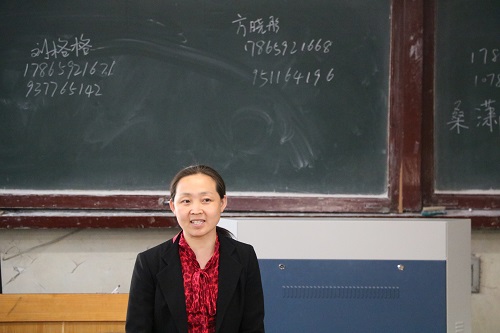 刘格格
17865921671
937765142
方晓彤
17865921668
951164196
178
178
桑潇